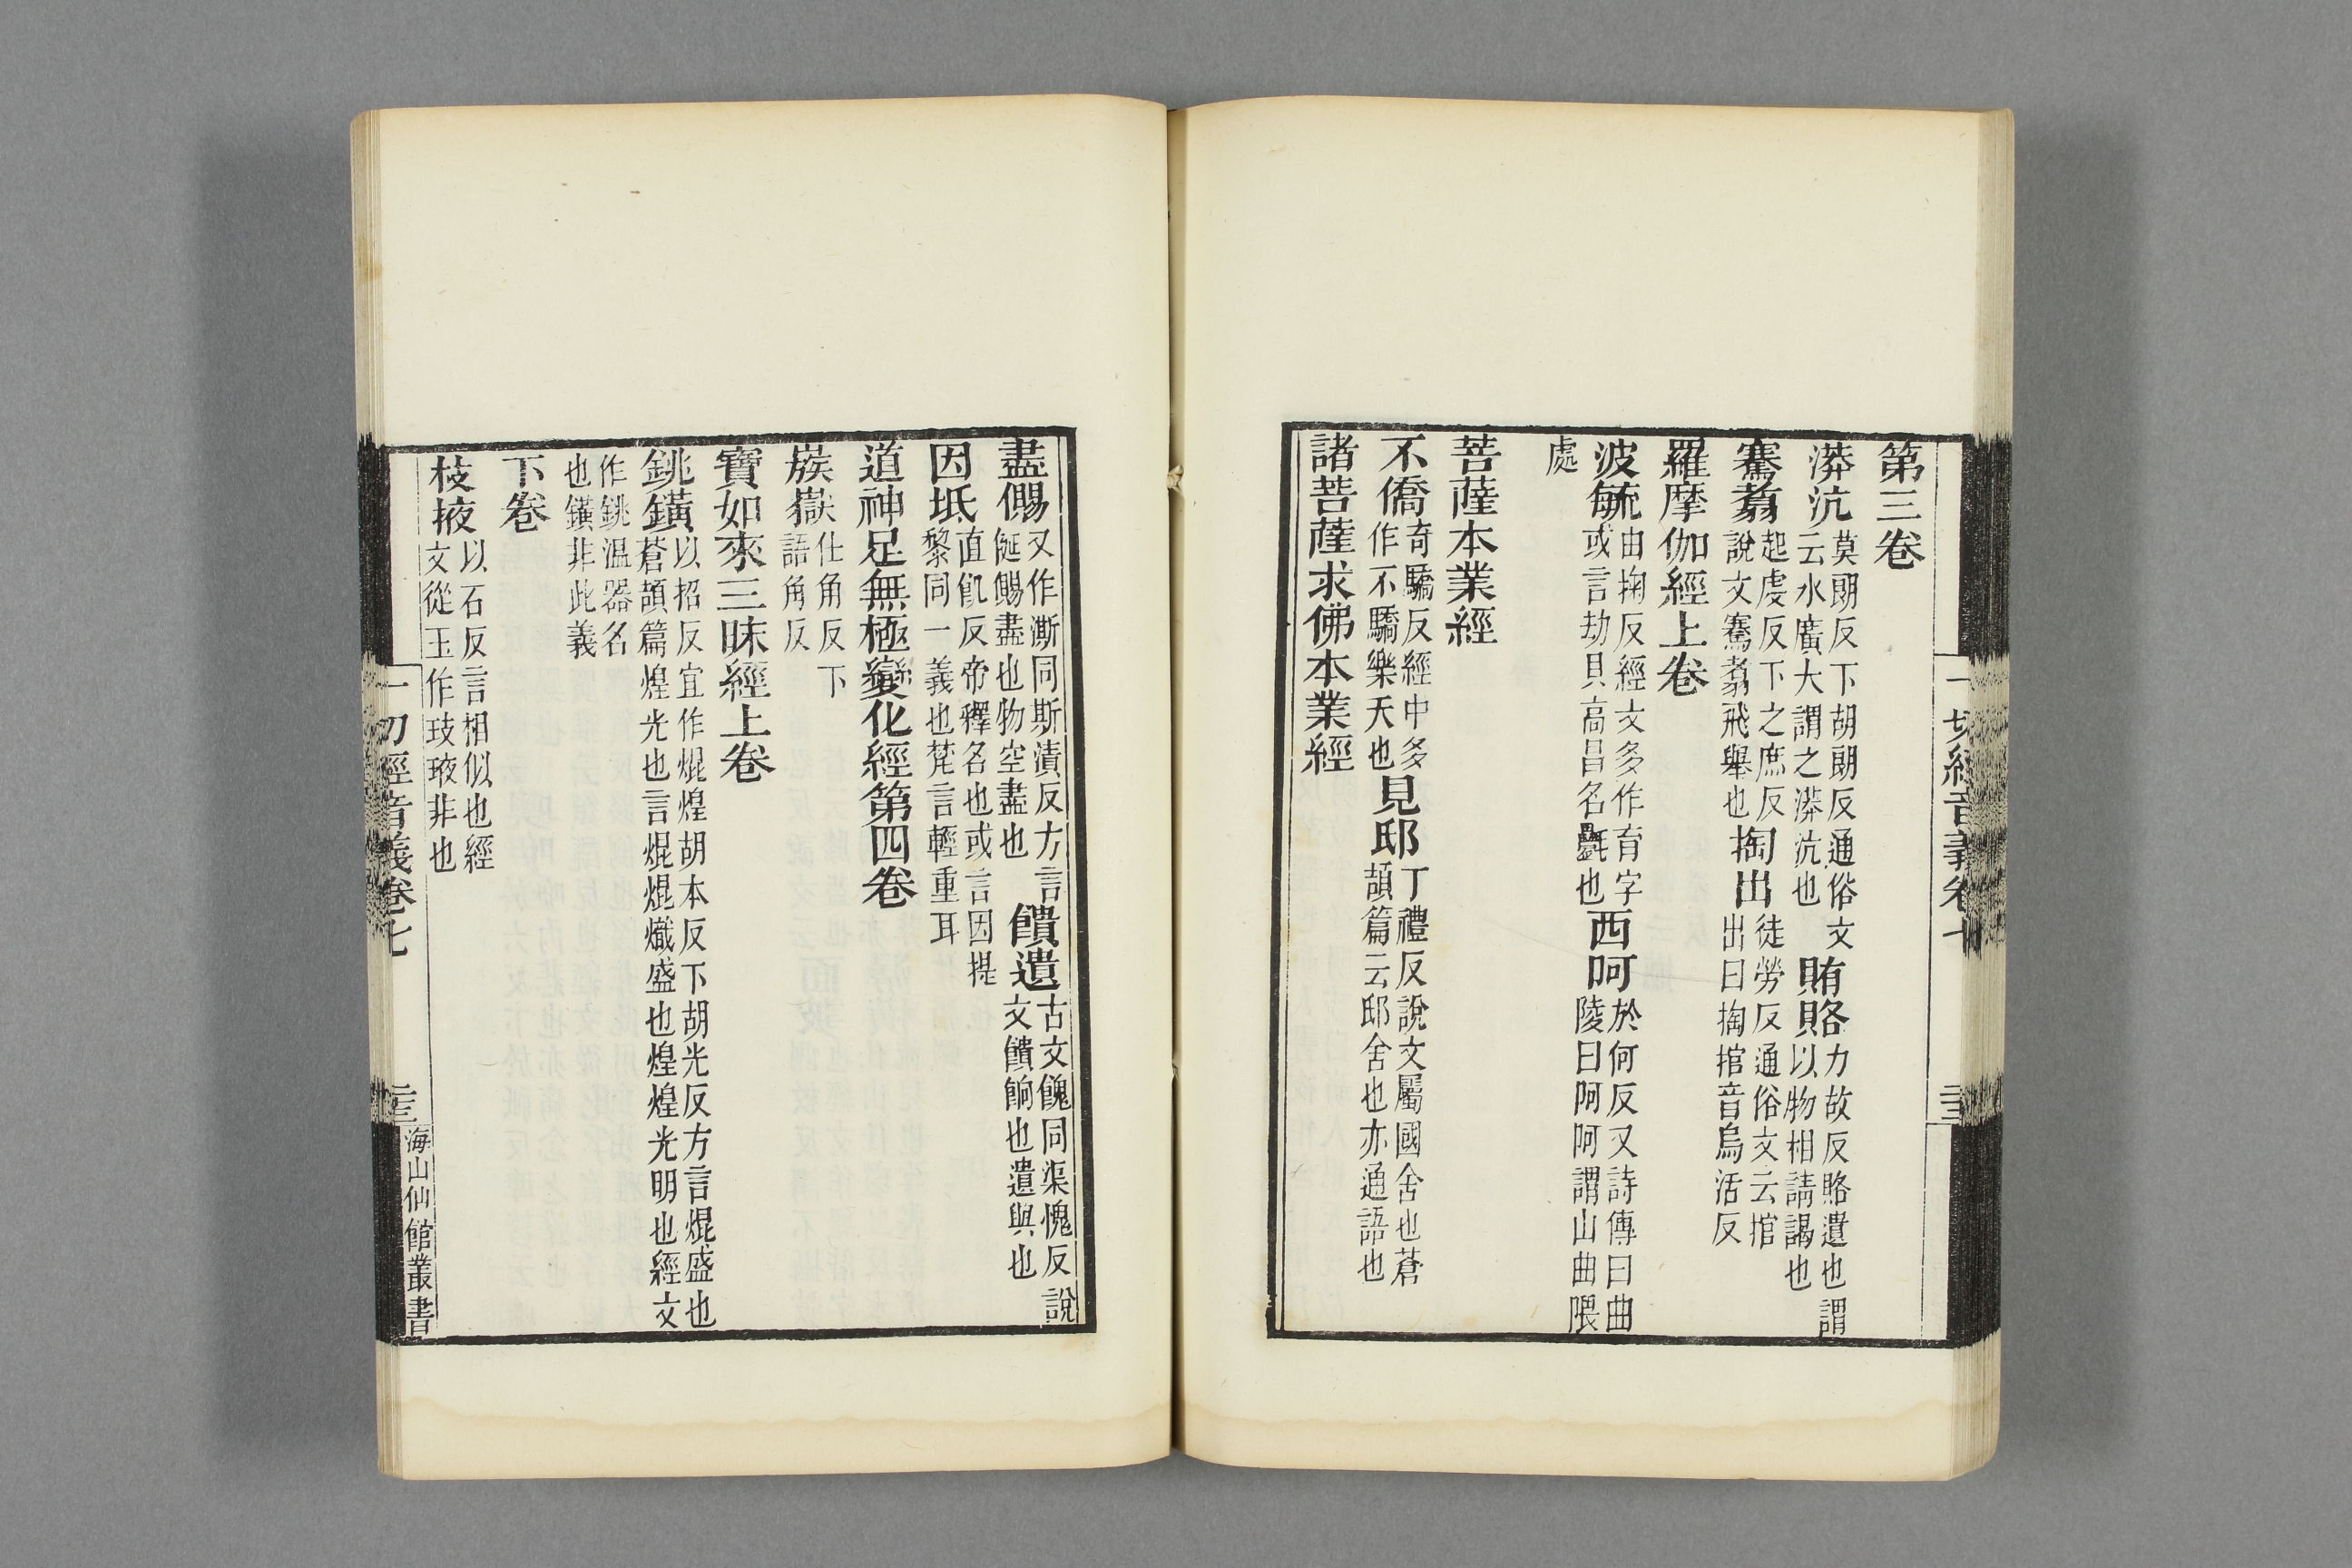 第三卷
漭沆莫朗反下胡朗反通俗文云水廣大謂之漭沆也賄賂力故反賂遺也謂以物相請謁也
騫翥起虔反下之庶反說文騫翥飛舉也掏出徒勞反通俗文云掐出曰掏掐音烏活反
羅摩伽經上卷
波毓由掬反經文多作育字或言劫貝高昌名㲲也西呵於何反又詩傳曰曲陵曰阿阿謂山曲隈
處
菩薩本業經
不僑奇驕反經中多作不驕樂天也見邸丁禮反說文屬國舍也蒼頡篇云邸舍也亦通語也
諸菩薩求佛本業經
盡儩又作澌同斯漬反方言鋌賜盡也物空盡也饋遺古文餽同渠愧反說文饋餉也遺與也
因坻直飢反帝釋名也或言因提黎同一義也梵言輕重耳
道神足無極變化經第四卷
蔟嶽仕角反下語角反
寶如來三昧經上卷
銚鐄以招反宜作焜煌胡本反下胡光反方言焜盛也蒼頡篇煌光也言焜焜熾盛也煌煌光明也經文
作銚溫器名也鐄非此義
下卷
枝掖以石反言相似也經文從玉作玟玻非也
一切經音義卷七
海山仙館叢書